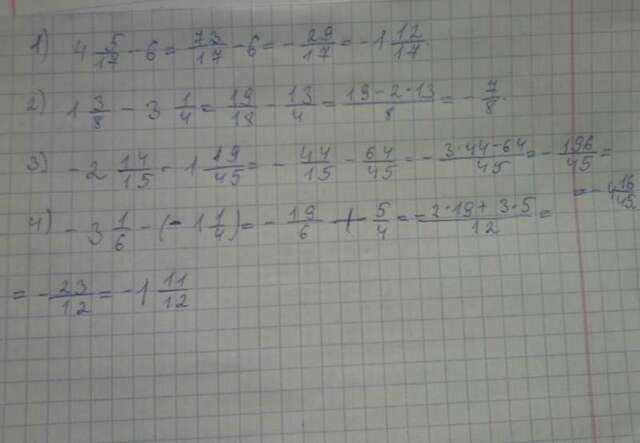 1) 4 5/17 - 6 = 73/17 - 6 = - 29/17 = -1 12/17
2) 1 3/8 - 3 1/4 = 19/18 - 13/4 = (19-2·13)/8 = - 7/8.
3) - 2 14/15 - 1 19/45 = - 44/15 - 64/45 = - (3·44-64)/45 = - 196/45 =
= - 4 16/45
4) - 3 1/6 - (- 1 1/4) = - 19/6 + 5/4 = (-2·19+3·5)/12 =
= - 23/12 = -1 11/12